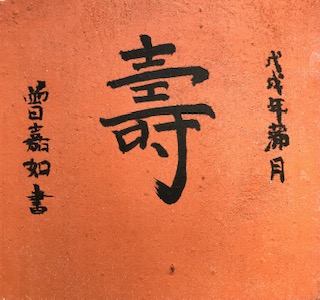 戊戌年蒲月
壽
曾嘉如書